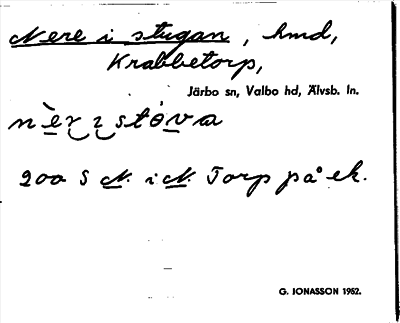 Nere i stugan, hmd,
Krabbetorp,
Järbo sn, Valbo hd, Älvsb. ln.
nèr i stóva
200 S N. i N. Torp på ek.
G. JONASSON 1952.